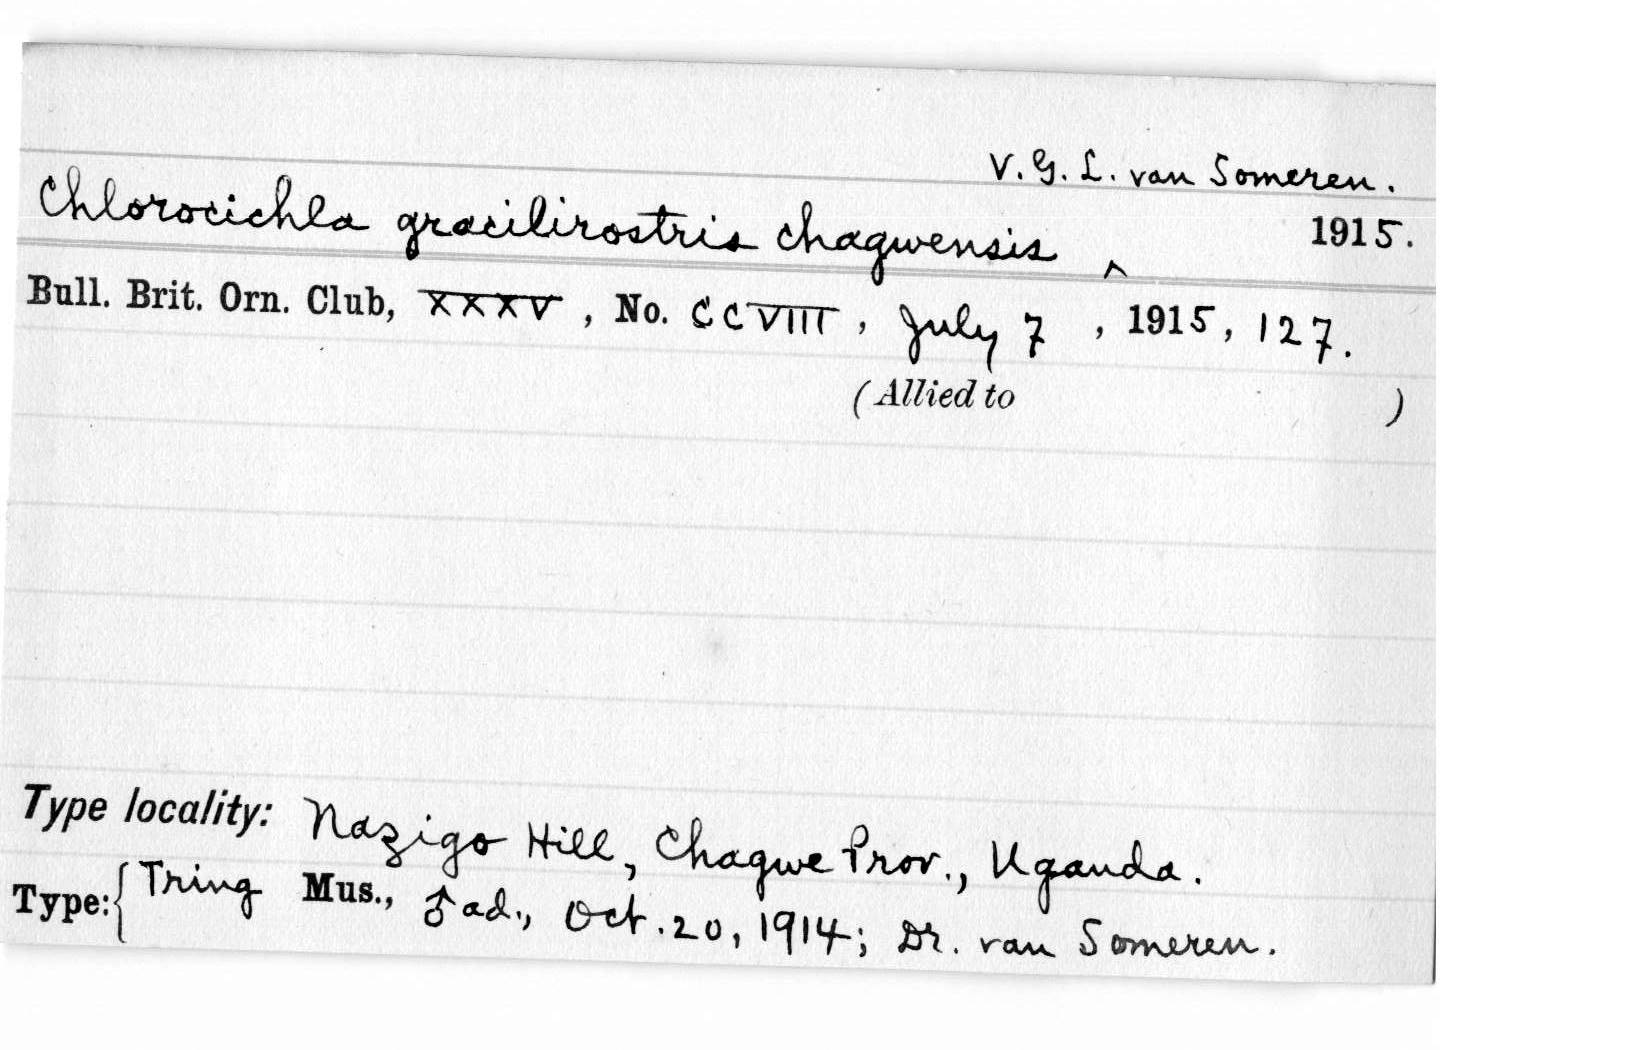 V. G. L. van Someren.
Chlorocichla gracilirostris chagwensis ^ 1915.
Bull. Brit. Orn. Club, XXXV, No. CCVIII, July 7, 1915, 127.
(Allied to )
Type locality: Nazigo Hill, Chagwe Prov., Uganda.
Type: { Tring Mus., ♂ ad., Oct. 20, 1914; Dr. van Someren.